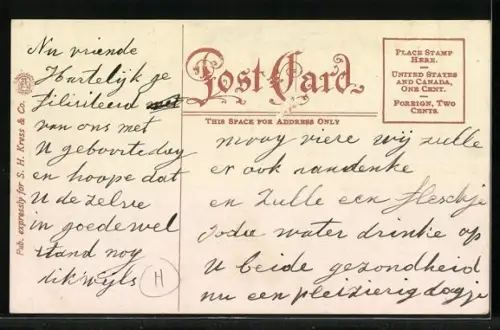 Nu vriende
Hartelijk ge
filisiteerd met
van ons met
U geboortedag
en hoope dat
U de zelve
in goede wel
stand nog
dikwyls
H
Pub. expressly for S. H. Kress & Co.
Post Card.
THIS SPACE FOR ADDRESS ONLY
PLACE STAMP
HERE.
UNITED STATES
AND CANADA,
ONE CENT.
FOREIGN, TWO
CENTS.
moog viere wij zulle
er ook aandenke
en Zulle een fleschje
Soda water drinke op
U beide gezondheid
nu een pleizierig dagje